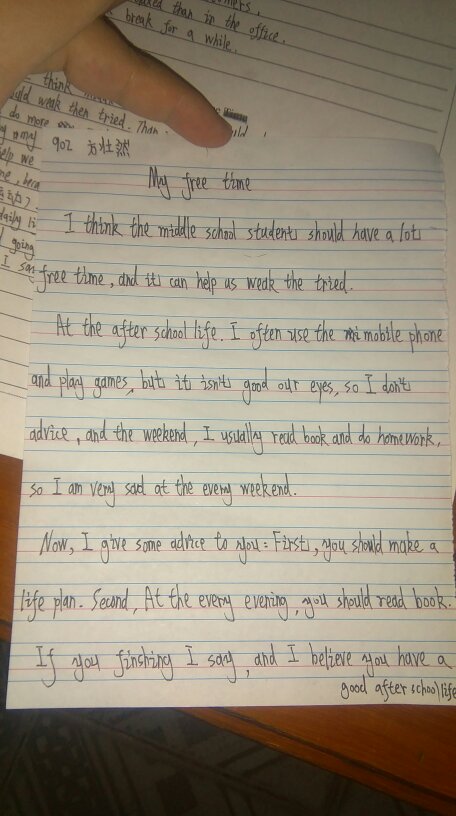 axed than in the office.
break for a while.
think
uld weak then tried. Than
do more
elp we
daily li
going
902 方壮然
My free time
I think the middle school students should have a lot
free time, and it can help us weak the tried.
At the after school life. I often use the mobile phone
and play games, but it isn't good our eyes, so I don't
advice, and the weekend, I usually read book and do homework,
so I am very sad at the every weekend.
Now, I give some advice to you: First, you should make a
life plan. Second, At the every evening, you should read book.
If you finshing I say, and I believe you have a
good after school life